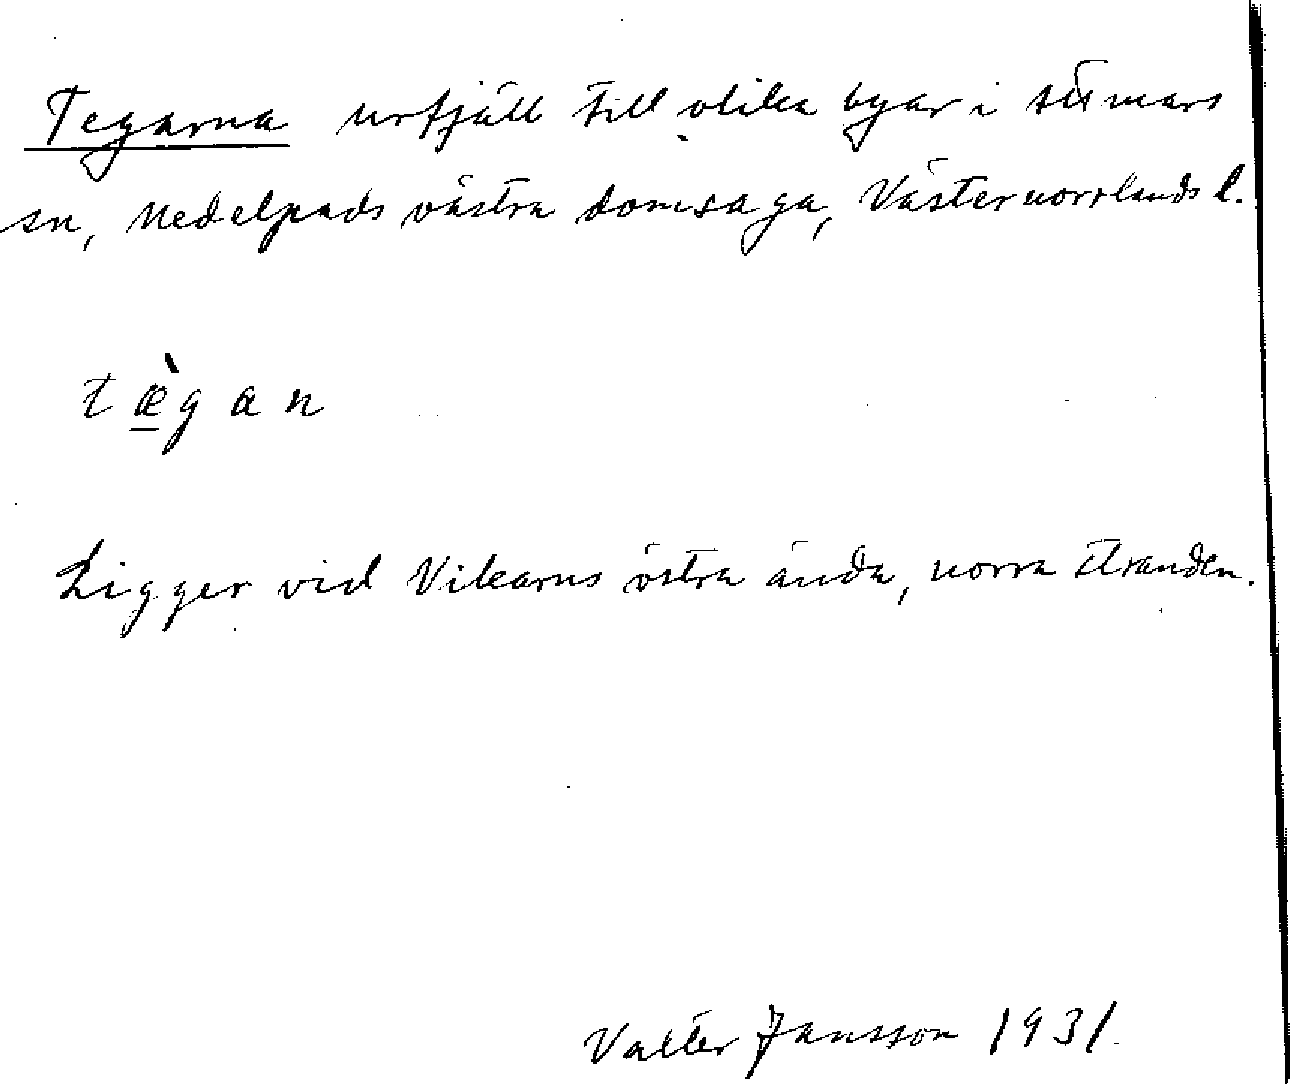 Tegarna urfjäll till olika byar i Attmars
sn, Medelpads västra domsaga, Västernorrlands l.
tæ̀gan
Ligger vid Vikarns östra ända, norra stranden.
Valter Jansson 1931.